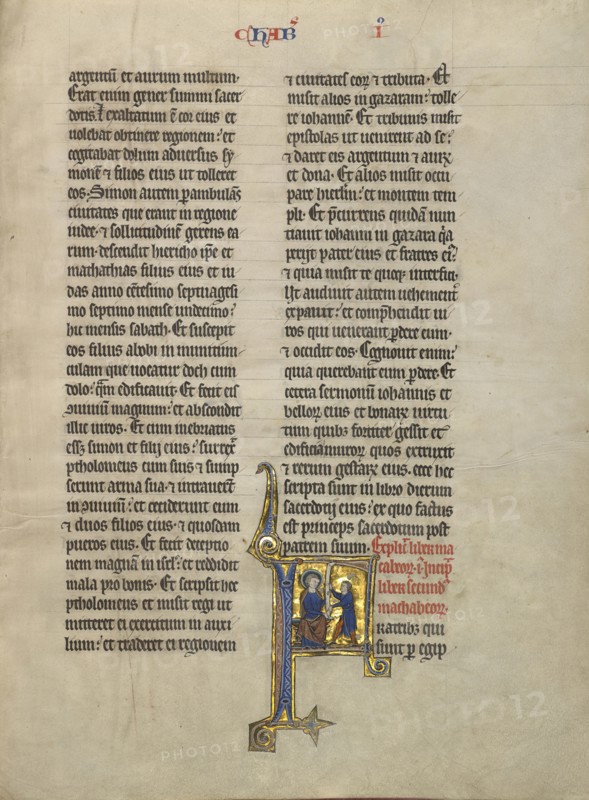 CHAB' I
argentũ et aurum multum·
Erat enim gener summi sacer
dotis. Et exaltatum ē cor eius et
uolebat obtinere regionem: et
cogitabat dolum aduersus sy
monē ⁊ filios eius ut tolleret
eos. Simon autem ꝑambulãs
ciuitates que erant in regione
iudee· ⁊ sollicitudinē gerens ea
rum· descendit hiericho ipe et
mathathias filius eius et iu
das anno cētesimo septuagesi
mo septimo mense undecimo:
hic mensis sabath. Et suscepit
eos filius abobi in munitiun
culam que uocatur doch cum
dolo: q̃m edificauit. Et fecit eis
magnum: et abscondit
illic uiros. Et cum inebriatus
esset simon et filij eius: surrex̃
ptholomeus cum suis ⁊ sump
serunt arma sua· ⁊ intrauerũt
in : et occiderunt eum
⁊ duos filios eius· ⁊ quosdam
pueros eius. Et fecit deceptio
nem magnã in isrl: et reddidit
mala pro bonis. Et scripsit hec
ptholomeus et misit regi ut
mitteret ei exercitum in auxi
lium: et traderet ei regionem
⁊ ciuitates eoꝝ ⁊ tributa· Et
misit alios in gazaram: tolle
re iohannē. Et tribunis misit
epistolas ut uenirent ad se:
⁊ daret eis argentum ⁊ auꝝ
et dona. Et alios misit occu
pare hierlm: et montem tem
pli. Et p̃currens quidã nun
tiauit iohanni in gazara q̃a
perijt pater eius et fratres ei:
⁊ quia misit te quoqꝫ interfici·
Ut audiuit autem uehementꝰ
expauit: et comp̃hendit ui
ros qui uenerant ꝑdere eum·
⁊ occidit eos. Cognouit enim:
quia querebant eum ꝑdere. Et
cetera sermonũ iohannis et
belloꝝ eius et bonaꝝ uirtu
tum quibꝫ fortiter gessit et
edificii muroꝝ quos extruxit
⁊ rerum gestaꝝ eius. ecce hec
scripta sunt in libro dierum
sacerdotij eius: ex quo factus
est princeps sacerdotum post
patrem suum. Explic̃ liber ma
cabeoꝝ· i· Incip̃
liber secund
machabeoꝝ·
Fratribꝫ qui
sunt ꝑ egip
PHOTO12